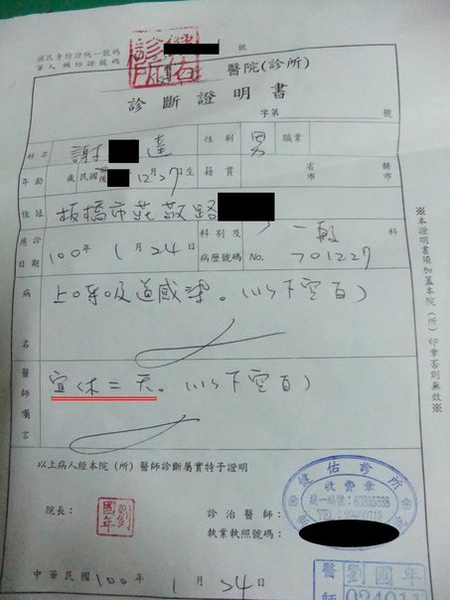 國民身份證統一號碼
軍人補給證號碼
號
診所 佑
醫院(診所)
診斷證明書
字第 號
姓名 謝 達 性別 男 職業
年齡 歲 民國 前 後 12月27生 籍貫 省市 縣市
住址 板橋市莊敬路
應診日期 100年1月24日 科別及病歷號碼 一般 科
No. 701227
病名 上呼吸道感染。(以下空白)
醫師囑言 宜休二天。(以下空白)
以上病人經本院(所)醫師診斷屬實特予證明
院長: 劉國年
診治醫師:
執業執照號碼:
健佑診所
收費章
統一編號:
TEL:
中華民國100年1月24日
醫師 劉國年
024011
※本證明書須加蓋本院(所)印章否則無效※